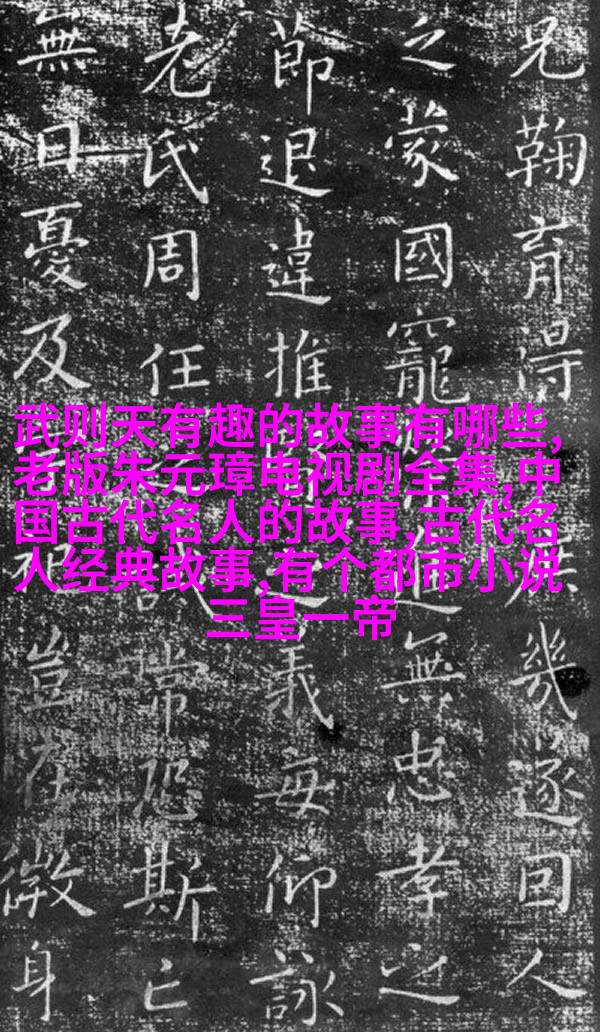 兄鞠育得庶幾遂回人
之蒙國寵進無忠孝之
節退違推之義每仰詠
老氏周任常恐斯亡
無日憂及豈在微身
武则天有趣的故事有哪些,
老版朱元璋电视剧全集,中
国古代名人的故事,古代名
人经典故事,有个都市小说
三皇一帝